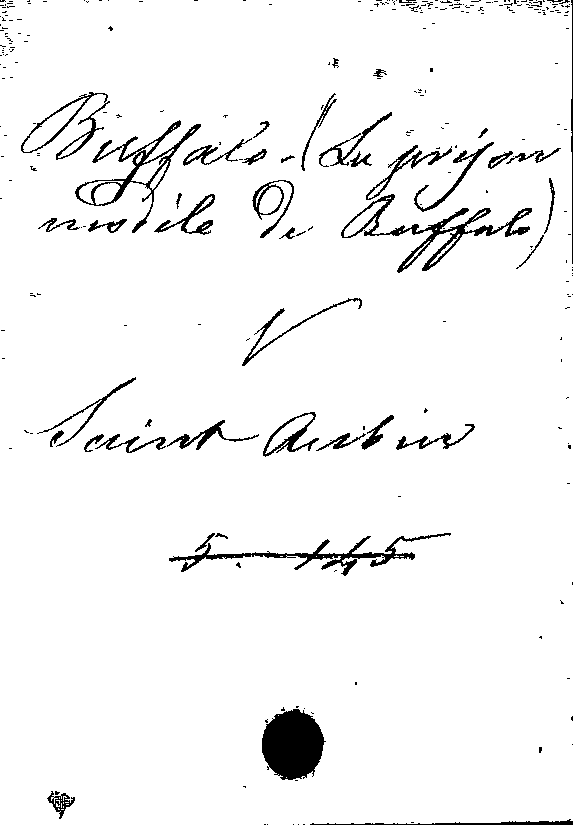 Buffalo. (La prison
modèle de Buffalo)
V
Saint Aubin
5. 145